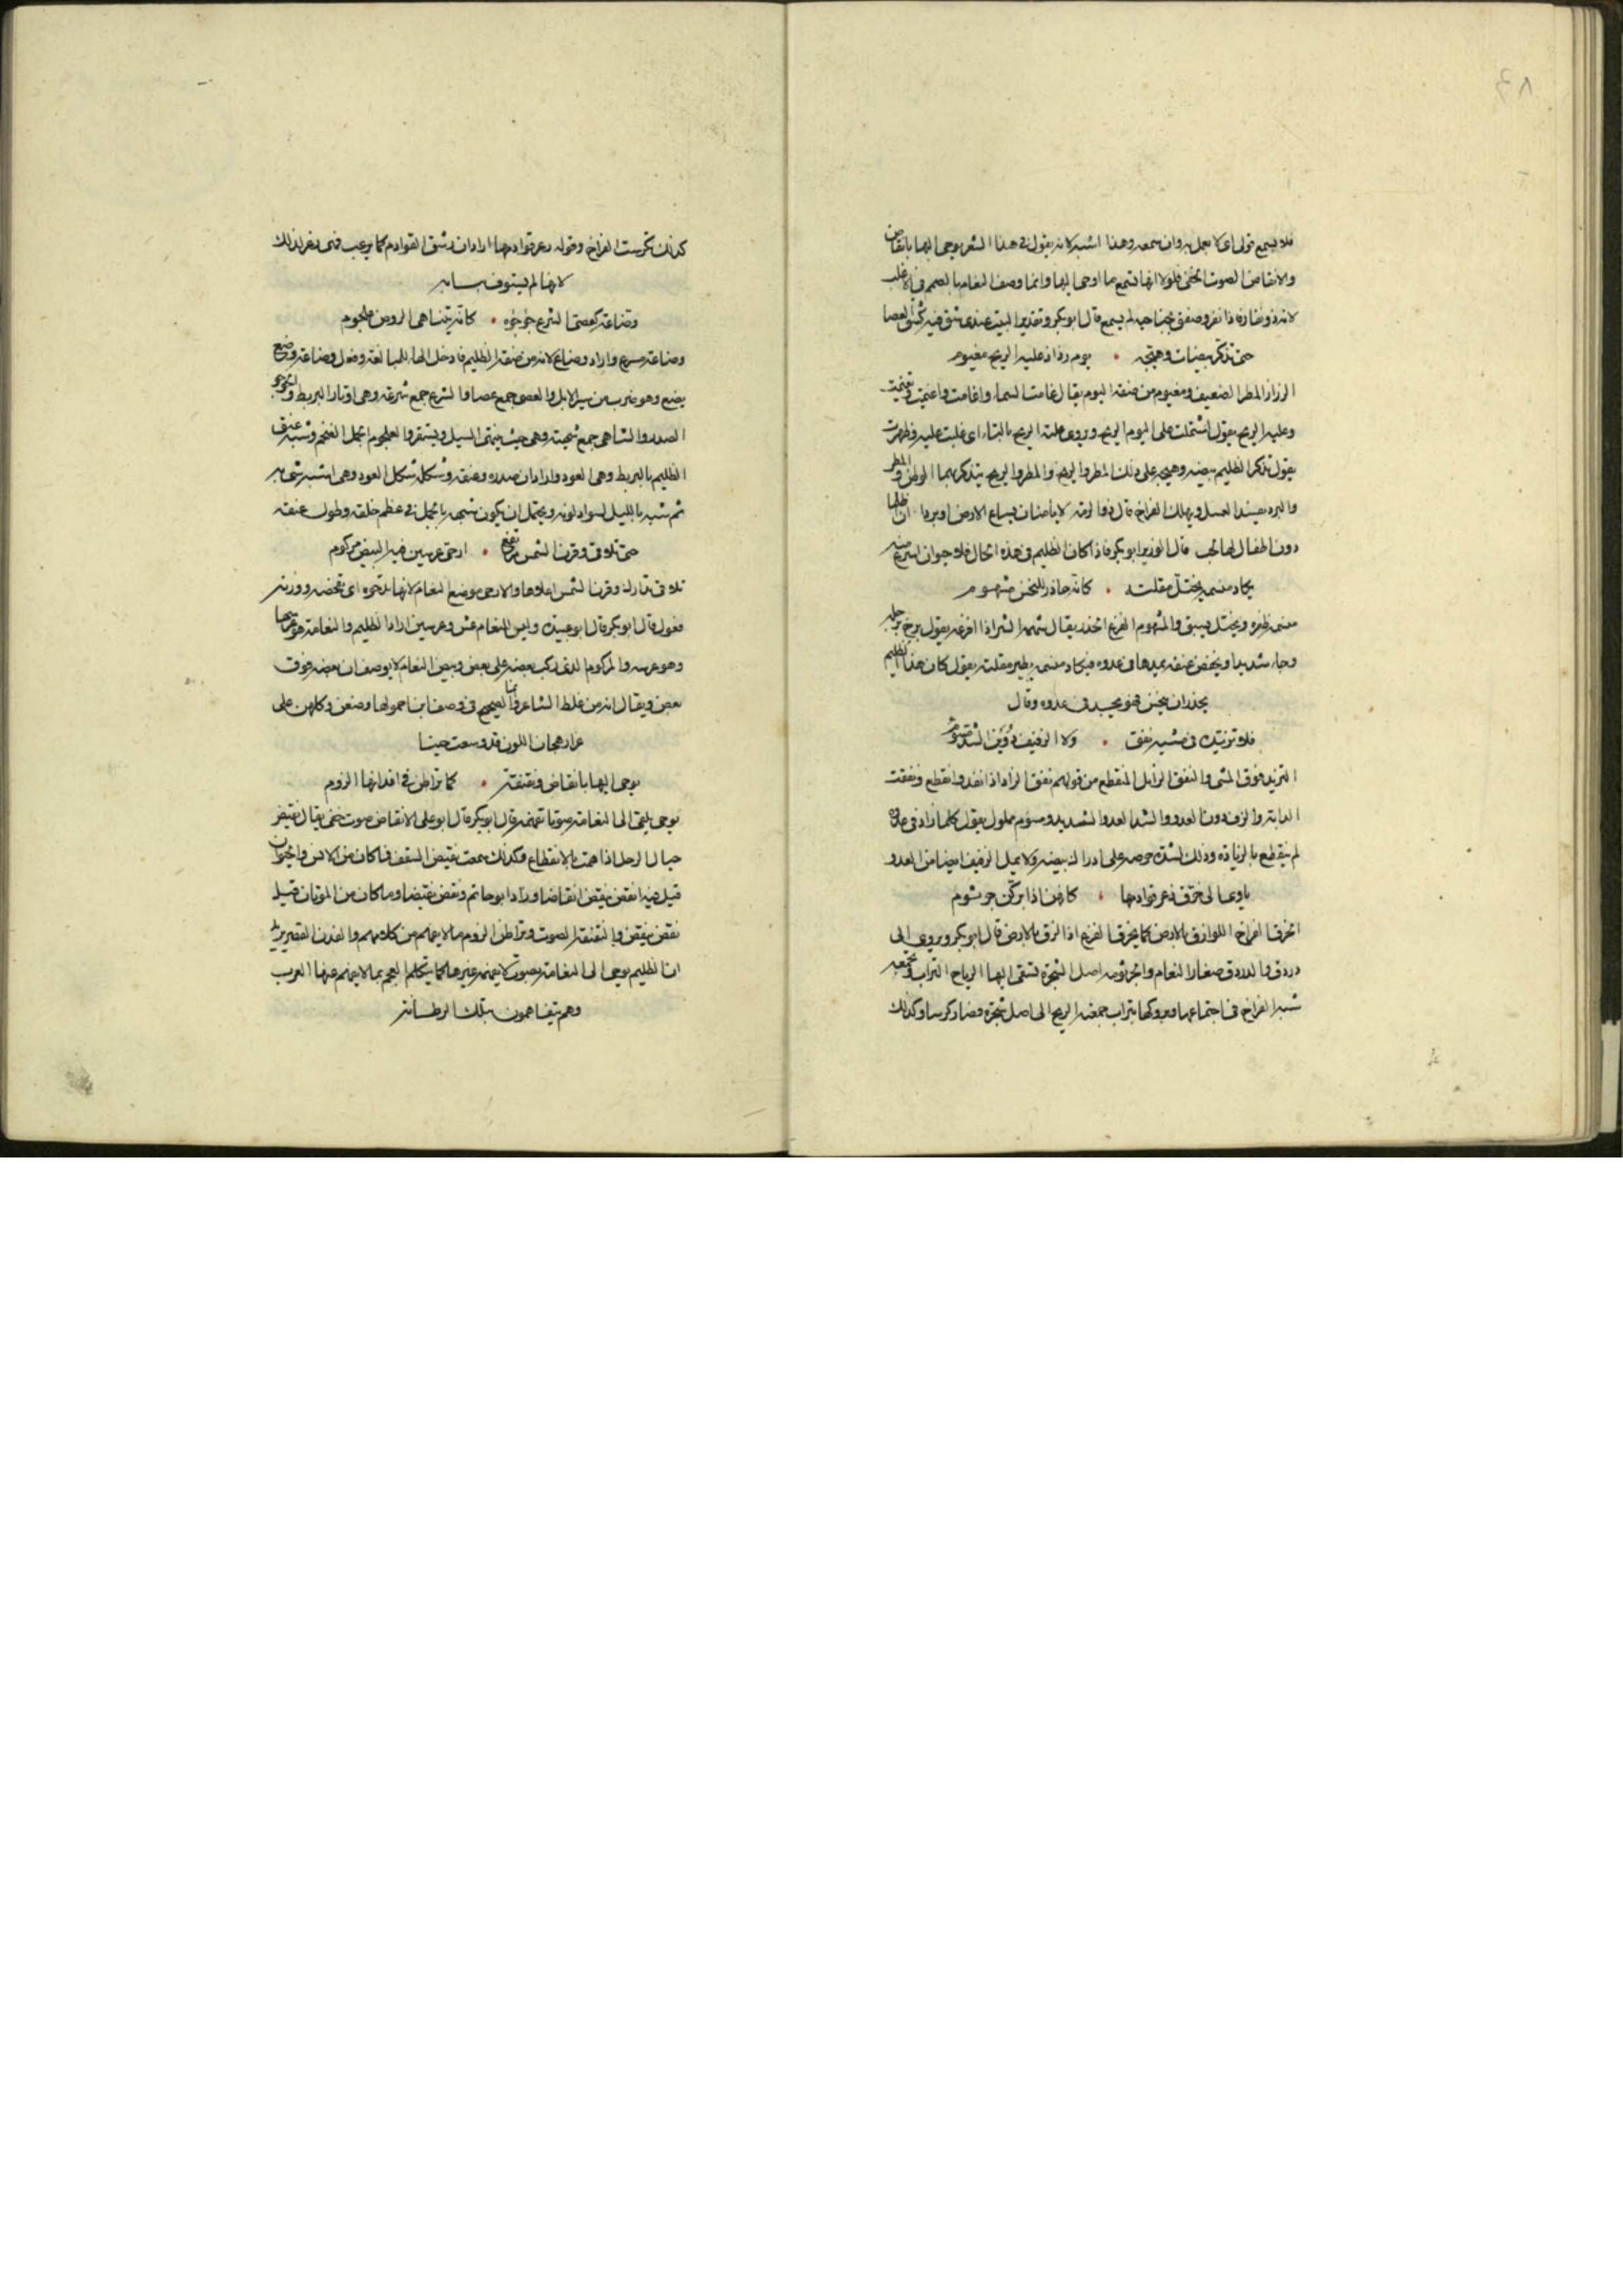 فلا يسمع قولى اى لا يعمل به وان سمعه وهذا اشبه لانه يقول فى هذا الشعر يوحى اليها بانقاض
والانقاض الصوت الخفى فلولا انها تسمع ما اوحى اليها وانما وصف النعام بالصمم فى الاغلب
لانه ذو نفار فاذا نفر وصفق بجناحيه لم يسمع قال ابو بكر وتقدير البيت عندى شق فيه كشق العصا
حتى تذكر بيضات وهيجه • يوم رذاذ عليه الريح مغيوم
الرذاذ المطر الضعيف ومغيوم من صفة اليوم يقال غامت السماء واغامت واغيمت وتغيمت
وعليه الريح يقول اشتملت على اليوم الريح ويروى علته الريح بالتاء اى غلبت عليه وظهرت
يقول تذكر الظليم بيضه وهيجه على ذلك المطر والريح والمطر والريح يتذكر بهما الوطن والمطر
والبرد يفسد العسل ويهلك الفراخ قال ذو الرمة لا يامنان سباع الارض او بردا ان اظلما
دون اطفال لها لجب قال الوزير ابو بكر فاذا كان الظليم فى هذه الحال فلا حيوان اسرع منه
يكاد منسمه يختل مقلته • كانه حاذر للنخس مشهوم
معنى ظفره ويختل يسبق والمشهوم الفزع الحذر يقال شهمه الشر اذا افزعه يقول يزج برجله
وجاء شديدا ويخفض عنقه يمدها فى عدوه فيكاد منسمه يطير مقلته يقول كان هذا الظليم
يحذر ان ينخس فهو يجد فى عدوه وقال
فلا تزيده فى مشيه نفق • ولا الزفيف دوين الشد مسؤم
التزيد فوق المشى والنفق الزائل المنقطع من قولهم نفق الزاد اذا نفد وانقطع ونفقت
الدابة والزف دون العدو والشد العدو الشديد ومسؤم مملول يقول كلما زاد فى عدوه
لم ينقطع بالزيادة وذلك لشدة حرصه على ادراك بيضه ولا يمل الزفيف ايضا من العدو
ياوى الى خرق زعر قوادمها • كانهن اذا بركن جرثوم
الخرق الفراخ اللوازق بالارض كما يخرق الفزع اذا لزق بالارض قال ابو بكر ويروى الى
دردق والدردق صغار النعام والجرثومة اصل الشجرة تسفى اليها الرياح التراب وتجمعه
شبه الفراخ فى اجتماعها وبروكها بتراب جمعته الريح الى اصل شجرة فصار كرسا وكذلك
كذلك تكرست الفراخ وقوله زعر قوادمها اراد ان ريش القوادم كما يوعب فهى زعر لذلك
لانها لم تستوف بساير
وضاعة كعصى الشرع جؤجؤه • كانه بتناهى الروض علجوم
وضاعة مسرع واراد وضاع لانه من صفة الظليم فادخل الهاء للمبالغة وفعل وضاعة وضع
يضع وهو ضرب من سير الابل والعصى جمع عصا والشرع جمع شرعة وهى اوتار البربط والجؤجؤ
الصدر والتناهى جمع تنهية وهى حيث ينتهى السيل ويستقر والعلجوم الجمل الضخم وشبه عنق
الظليم بالبربط وهى العود واراد ان صدره وعنقه وشكله شكل العود وهى اشبه شى به
ثم شبه بالليل لسواد لونه ويحتمل ان يكون شبهه بالجمل فى عظم خلقه وطول عنقه
حتى تلافى وقرن الشمس مرتفع • ادحى عرسين فيه البيض مركوم
تلافى تدارك وقرن الشمس اعلاها والادحى موضع النعام لانها تدحوه اى تفحصه ووزنه
فعول قال ابو بكر قال ابو عبيدة وليس للنعام عش وعرسين اراد الظليم والنعامة هو عرسها
وهو عرسه والمركوم الذى ركب بعضه على بعض وبيض النعام لا يوصف ان بعضه فوق
بعض ويقال انه من غلط الشاعر وانما الصحيح فى وصف ابن احمر لها وضعن وكلهن على
غرار هجان اللون قد وسعت جنينا
يوحى اليها بانقاض ونقنقة • كما تراطن فى افدانها الروم
يوحى يلقى الى النعامة صوتا تفهمه قال ابو بكر قال ابو على الانقاض صوت خفى يقال نقيض
حبال الرحل اذا همت بالانقطاع وكذلك سمعت نقيض السقف فما كان من الانس والحيوان
قيل فيه انقض ينقض انقاضا وزاد ابو حاتم ونقض نقيضا وما كان من الموتان قيل
نقض ينقض والنقنقة الصوت وتراطن الروم ما لا يفهم من كلامهم والفدن القصر يريد
ان الظليم يوحى الى النعامة بصوت لا يفهمه غيرها كما يتكلم العجم بما لا يفهم عنها العرب
وهم يتفاهمون بتلك الرطانة